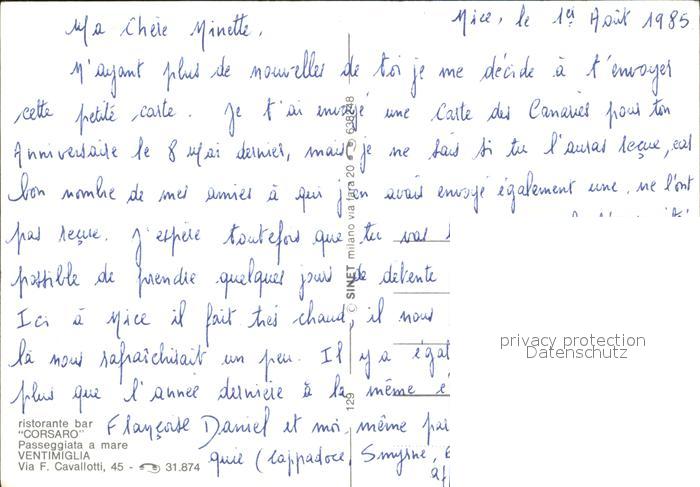 Nice, le 1er Août 1985
Ma Chère Minette,
N'ayant plus de nouvelles de toi je me décide à t'envoyer
cette petite carte. Je t'ai envoyé une carte des Canaries pour ton
Anniversaire le 8 Mai dernier, mais je ne sais si tu l'auras reçue, car
bon nombre de mes amies à qui j'en avais envoyé également une, ne l'ont
pas reçue. J'espère toutefois que tu vas
possible de prendre quelques jours de détente
Ici à Nice il fait très chaud, il nous
là nous rafraîchirait un peu. Il y a égal
plus que l'année dernière à la même é
Françoise Daniel et moi-même par
quie (Cappadoce, Smyrne, E
ristorante bar
"CORSARO"
Passeggiata a mare
VENTIMIGLIA
Via F. Cavallotti, 45 - 31.874
129 © SINET milano via fara 20 638248
privacy protection
Datenschutz